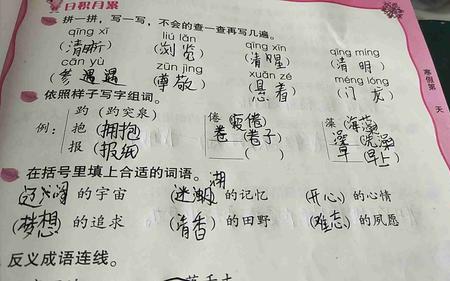 日积月累
拼一拼，写一写，不会的查一查再写几遍。
qīng xī liú lǎn qīng xǐn qīng míng
(清晰) (浏览) (清醒) (清明)
cān yù zūn jìng xuān zé méng lóng
(参遇遇) (尊敬) (悬着) (门龙)
依照样子写字组词。
趵(趵突泉) 倦(疲倦) 藻(海藻)
例： 抱(拥抱) 卷(卷子) 澡(洗澡)
报(报纸) ( ) 早(早上)
在括号里填上合适的词语。
湖
的宇宙 的记忆 (开心)的心情
(梦想)的追求 (清香)的田野 (难忘)的夙愿
反义成语连线。
寒假第 天